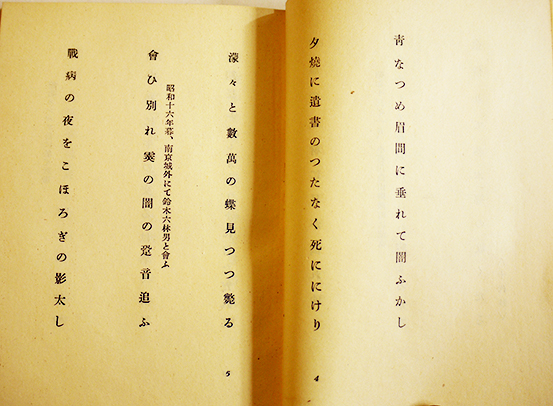 靑なつめ眉間に垂れて闇ふかし
夕燒に遺書のつたなく死ににけり
4
濛々と數萬の蝶見つつ斃る
昭和十六年暮、南京城外にて鈴木六林男と會ふ
會ひ別れ霙の闇の跫音追ふ
戰病の夜をこほろぎの影太し
5